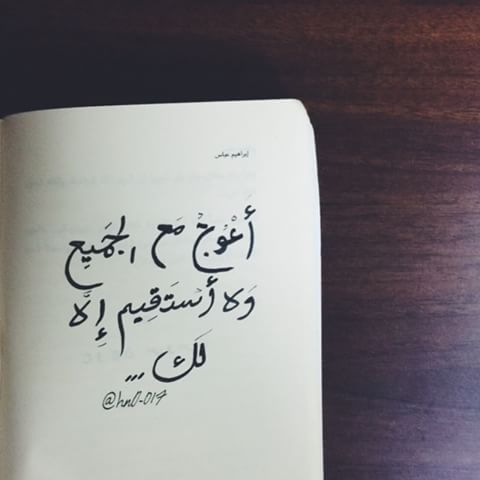 إبراهيم عباس
أَعْوَجْ مَع الجَمِيع
وَلا أسْتَقِيم إِلَّا
لَكَ ...
@hn0-014